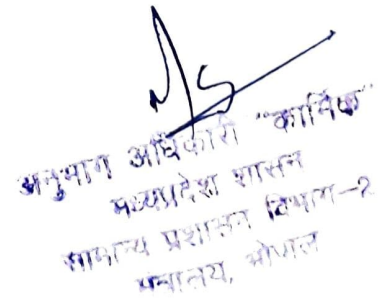 अनुभाग अधिकारी "कार्मिक"
मध्यप्रदेश शासन
सामान्य प्रशासन विभाग-2
मंत्रालय, भोपाल